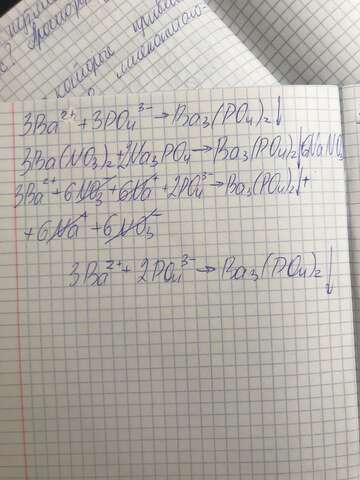 которые
3Ba²⁺ + 3PO₄³⁻ → Ba₃(PO₄)₂↓
3Ba(NO₃)₂ + 2Na₃PO₄ → Ba₃(PO₄)₂↓ 6NaNO₃
3Ba²⁺ + 6NO₃⁻ + 6Na⁺ + 2PO₄³⁻ → Ba₃(PO₄)₂↓ +
+ 6Na⁺ + 6NO₃⁻
3Ba²⁺ + 2PO₄³⁻ → Ba₃(PO₄)₂↓